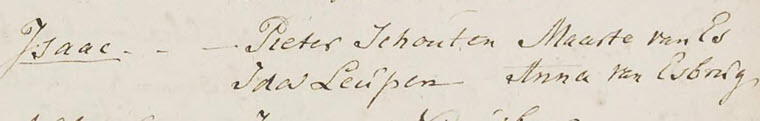 Isaac - - - Pieter Schouten Maarte van Es
Ida Leupen Anna van Esbrug